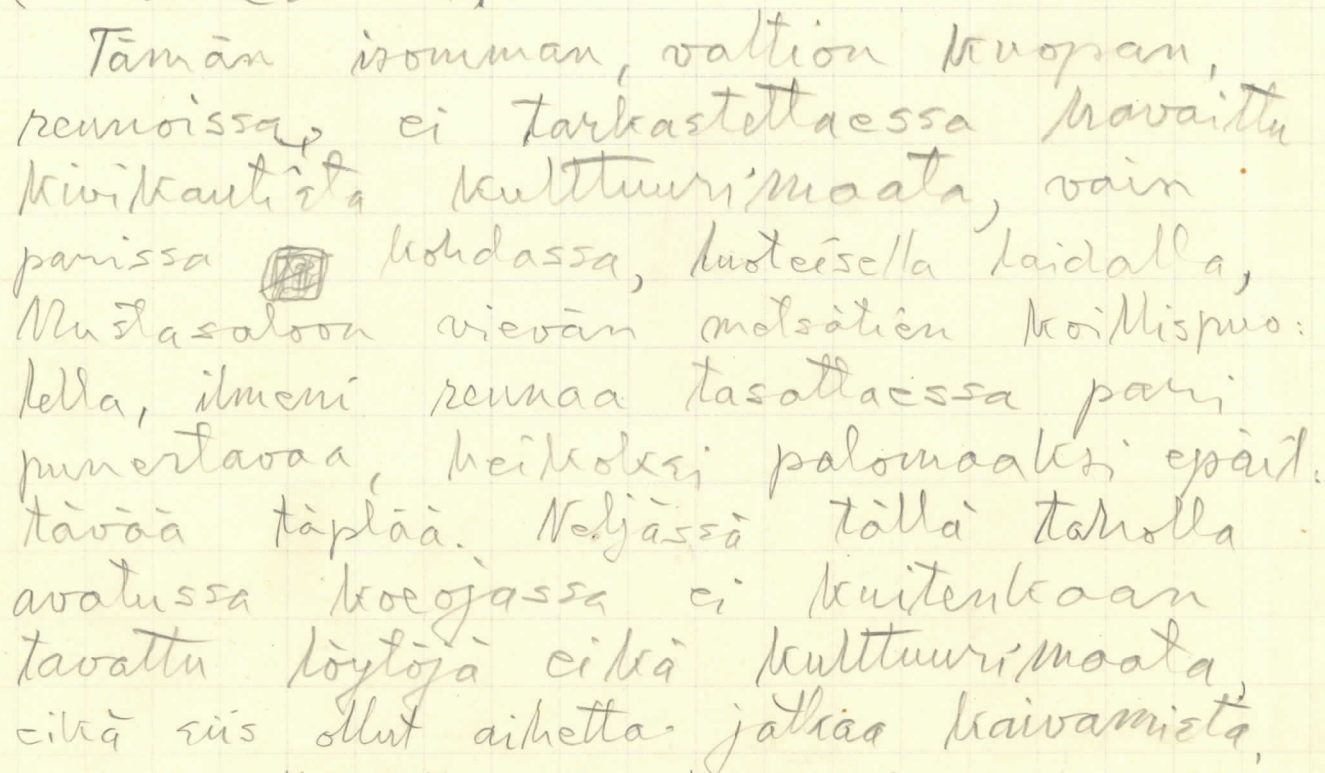 Tämän isomman, valtion kuopan,
rennoissa, ei tarkastettaessa havaittu
kivikautista kulttuurimaata, vain
parissa kohdassa, luoteisella laidalla,
Mustasaloon vievän metsätien koillispuo:
lella, ilmeni reunaa tasattaessa pari
punertavaa, heikoksi palomaaksi epäil:
tävää täplää. Neljässä tällä taholla
avatussa koeojassa ei kuitenkaan
tavattu löytöjä eikä kulttuurimaata,
eikä siis ollut aihetta jatkaa kaivamista.